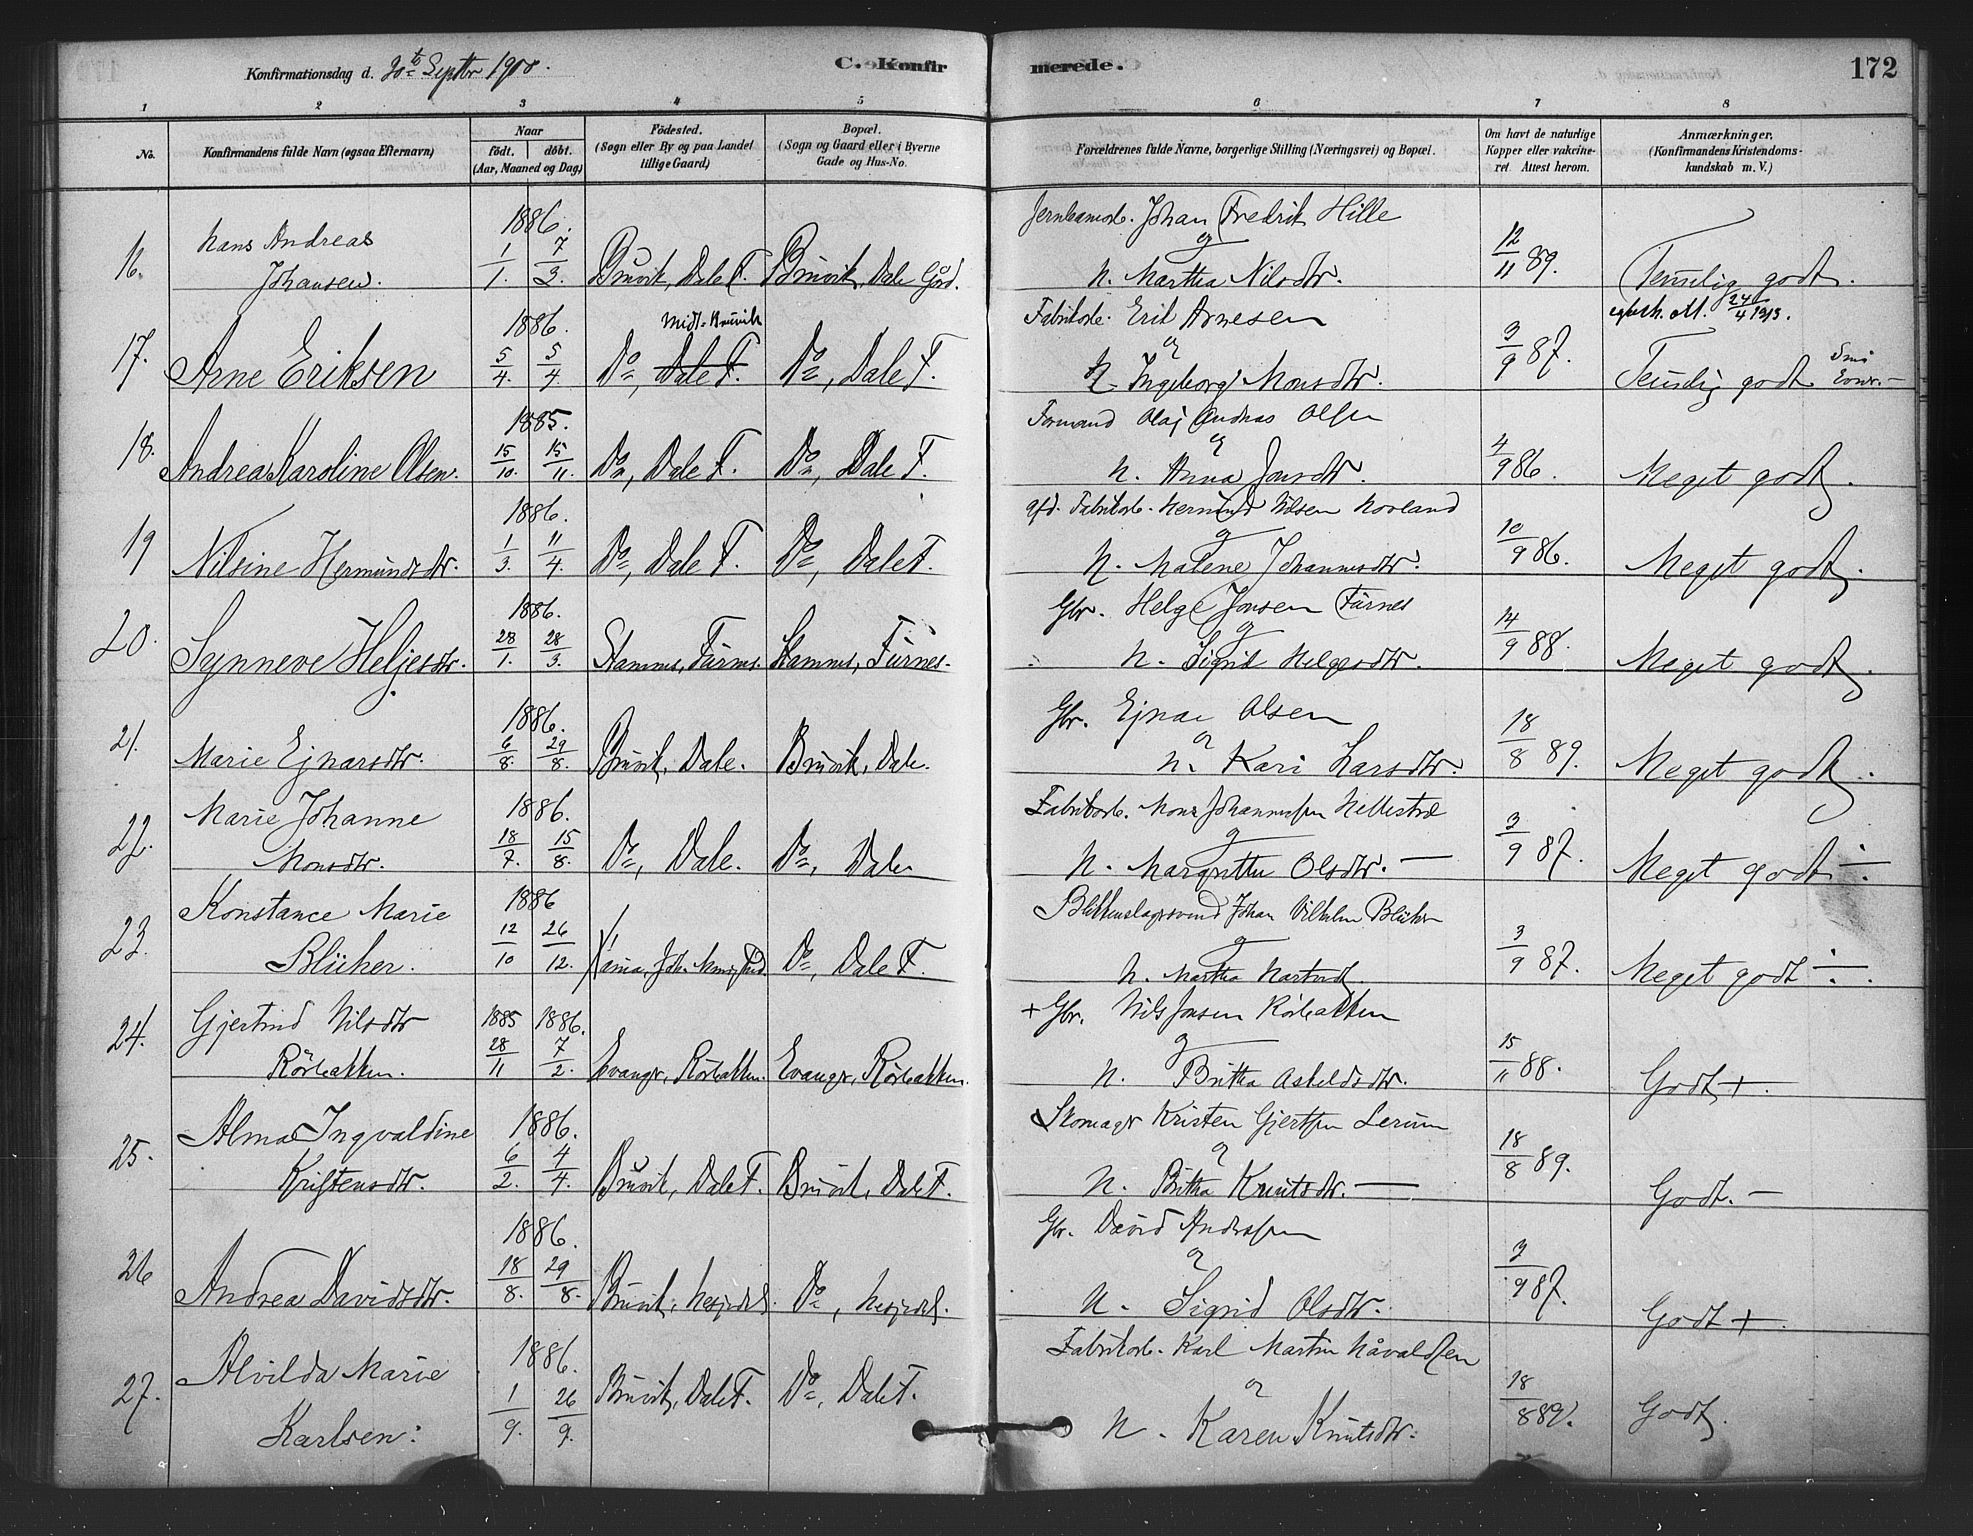 Konfirmationsdag d. 30te Septbr 1900.
C. Konfirmerede.
172
1 2 3 4 5 6 7 8
No.
Konfirmandens fulde Navn (ogsaa Efternavn)
Naar
födt. döbt.
(Aar, Maaned og Dag)
Födested.
(Sogn eller By og paa Landet
tillige Gaard)
Bopæl.
(Sogn og Gaard eller i Byerne
Gade og Hus-No.
Forældrenes fulde Navne, borgerlige Stilling (Næringsvei) og Bopæl.
Om havt de naturlige
Kopper eller vakcine-
ret Attest herom.
Anmærkninger.
(Konfirmandens Kristendoms-
kundskab m. V.)
1886. Jernbanearb. Johan Fredrik Hille
16. Hans Andreas og
Johansen. 1/1. 7/3. Bruvik, Dale F. Bruvik, Dale Gård. N. Martha Nilsdtr. 12/11 89. Temelig godt.
1886. Midt-Bruvik Fabrikarb. Erik Arnesen 24/4 1913.
17. Arne Eriksen 5/4. 5/4 Do, Dale F. Do, Dale F. og N. Ingeborg Monsdtr. 3/9 87. Temelig godt
1885. Formand Olaj Andreas Olsen
18. Andrea Karoline Olsen. 15/10. 15/11. Do, Dale F. Do, Dale F. og N. Anna Jonsdtr. 4/9 86. Meget godt.
1886. Fabrikarb. Hermund Nilsen Hovland
19 Nilsine Hermundsdtr. 1/3. 11/4. Do, Dale F. Do, Dale F. og N. Malene Johannesdtr. 10/9 86. Meget godt.
1886. Gbr. Helge Jonsen Fürnes
20. Synneve Heljesdtr. 28/1. 28/3. Stamnes, Fürnes. Stamnes, Fürnes. og N. Sigrid Helgesdtr. 14/9 88. Meget godt.
1886. Gbr. Ejnar Olsen
21. Marie Ejnarsdtr. 6/8. 29/8. Bruvik, Dale. Bruvik, Dale. og N. Kari Larsdtr. 18/8 89. Meget godt.
Marie Johanne 1886. Fabrikarb. Mons Johannessen Hellestræ
22. Monsdtr. 18/7. 15/8. Do, Dale. Do, Dale og N. Margrethe Olsdtr. — 3/9 87. Meget godt ÷
Konstance Marie 1886 Blikkenslagersvend Johan Vilhelm Blücher
23. Blücher. 12/10 26/12. Do, Dale F. og N. Martha 3/9 87. Meget godt ÷.
Gjertrud Nilsdtr 1885 1886. + Gbr. Nils Jonsen Rörbakken
24. Rörbakken. 28/11 7/2. Evanger, Rörbakken. Evanger, Rörbakken. og N. Britha Askeldsdtr. 15/11 88. Godt +.
Alma Ingvaldine 1886. Skomager Kristen Gjertsen Lerum
25. Kristensdtr. 6/2. 4/4. Bruvik, Dale F. Bruvik, Dale F. og N. Britha Knutsdtr. — 18/8 89. Godt. —
1886. Gbr. David Andressen
26 Andrea Davidsdtr. 18/8. 29/8. Bruvik, Hesjedal. Do, Hesjedal. og N. Sigrid Olsdtr. 3/9 87. Godt +.
Alvilda Marie 1886. Fabrikarb. Karl Martin Håvaldsen
27. Karlsen. 1/9. 26/9. Bruvik, Dale F. Do, Dale F. og N. Karen Knutsdtr. 18/8 89. Godt.